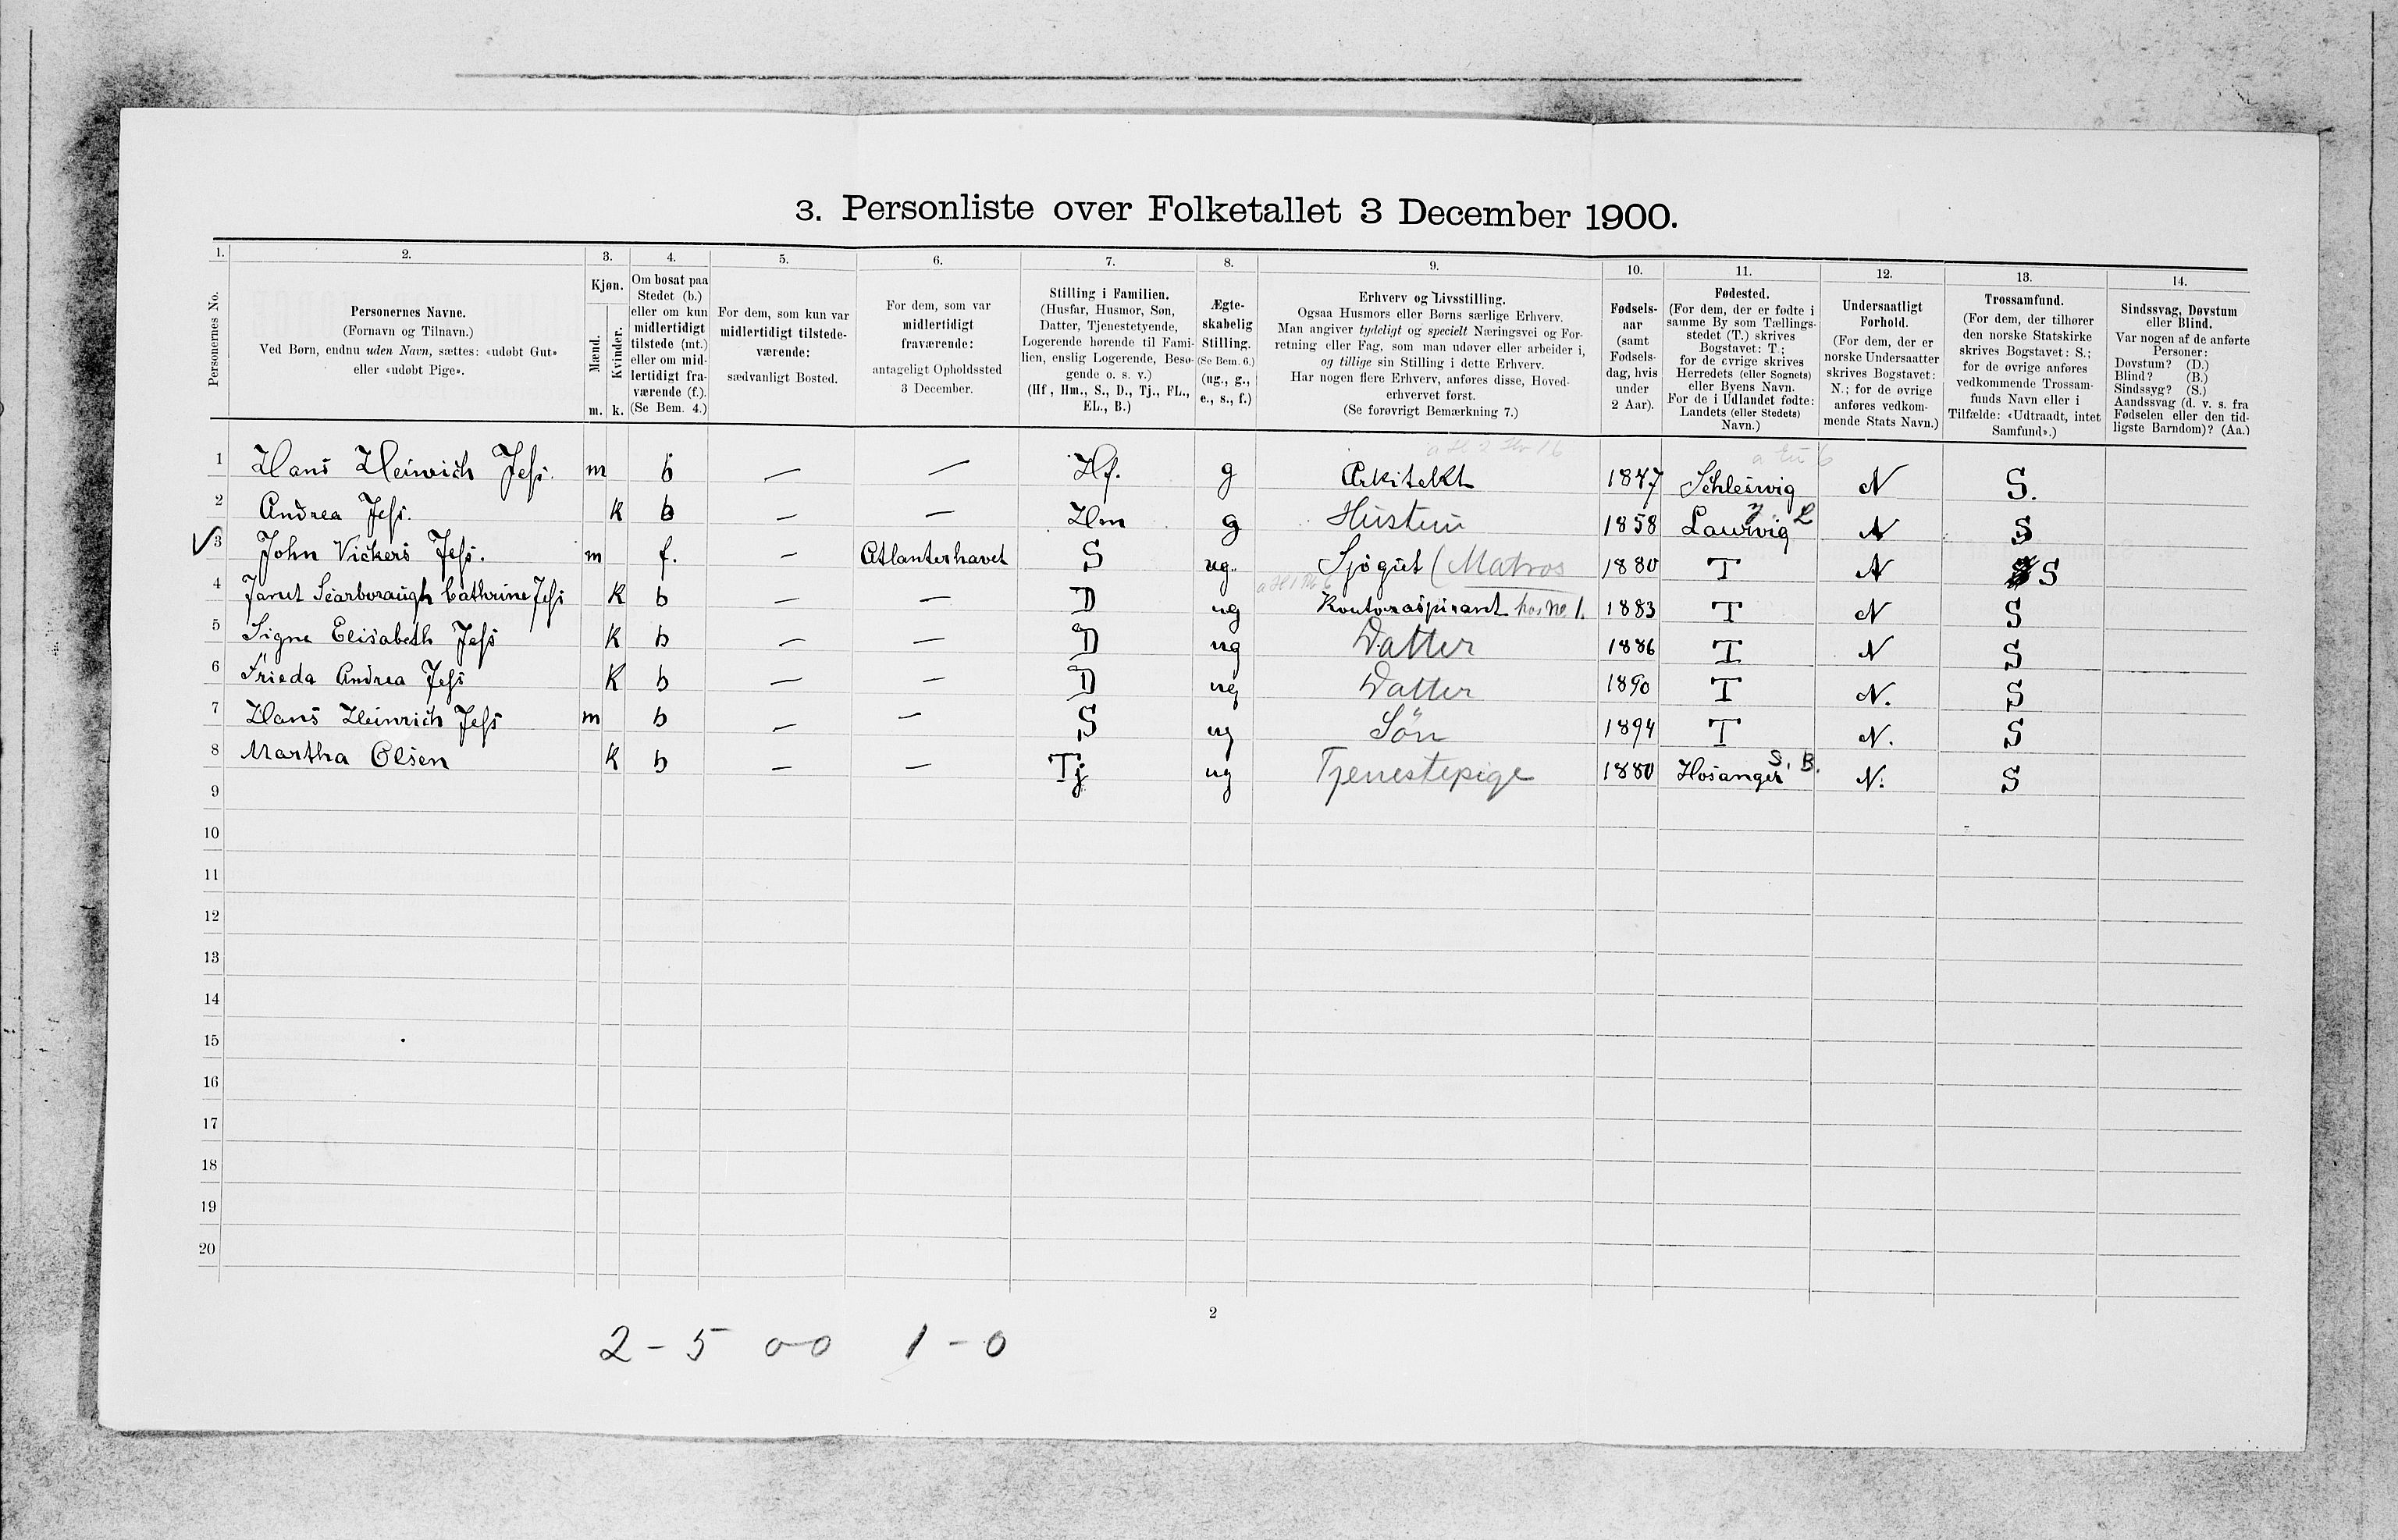 3. Personliste over Folketallet 3 December 1900.
1. 2. 3. 4. 5. 6. 7. 8. 9. 10. 11. 12. 13. 14.
Personernes No.
Personernes Navne.
(Fornavn og Tilnavn.)
Ved Børn, endnu uden Navn, sættes: «udøbt Gut»
eller «udøbt Pige».
Kjøn.
Mænd.
Kvinder.
m. k.
Om bosat paa
Stedet (b.)
eller om kun
midlertidigt
tilstede (mt.)
eller om mid-
lertidigt fra-
værende (f.).
(Se Bem. 4.)
For dem, som kun var
midlertidigt tilstede-
værende:
sædvanligt Bosted.
For dem, som var
midlertidigt
fraværende:
antageligt Opholdssted
3 December.
Stilling i Familien.
(Husfar, Husmor, Søn,
Datter, Tjenestetyende,
Logerende hørende til Fami-
lien, enslig Logerende, Besø-
gende o. s. v.)
(Hf, Hm., S., D., Tj., FL.,
EL., B.)
Ægte-
skabelig
Stilling.
(Se Bem. 6.)
(ug., g.,
e., s., f.)
Erhverv og Livsstilling.
Ogsaa Husmors eller Børns særlige Erhverv.
Man angiver tydeligt og specielt Næringsvei og For-
retning eller Fag, som man udøver eller arbeider i,
og tillige sin Stilling i dette Erhverv.
Har nogen flere Erhverv, anføres disse, Hoved-
erhvervet først.
(Se forøvrigt Bemærkning 7.)
Fødsels-
aar
(samt
Fødsels-
dag, hvis
under
2 Aar).
Fødested.
(For dem, der er fødte i
samme By som Tællings-
stedet (T.) skrives
Bogstavet: T.;
for de øvrige skrives
Herredets (eller Sognets)
eller Byens Navn.
For de i Udlandet fødte:
Landets (eller Stedets)
Navn.)
Undersaatligt
Forhold.
(For dem, der er
norske Undersaatter
skrives Bogstavet:
N.; for de øvrige
anføres vedkom-
mende Stats Navn.)
Trossamfund.
(For dem, der tilhører
den norske Statskirke
skrives Bogstavet: S.;
for de øvrige anføres
vedkommende Trossam-
funds Navn eller i
Tilfælde: «Udtraadt, intet
Samfund».)
Sindssvag, Døvstum
eller Blind.
Var nogen af de anførte
Personer:
Døvstum? (D.)
Blind? (B.)
Sindssyg? (S.)
Aandssvag (d. v. s. fra
Fødselen eller den tid-
ligste Barndom)? (Aa.)
1 Hans Heinrich Jess. m b — — Hf. g Arkitekt 1847 Schleswig N S.
2 Andrea Jess. k b — — Hm g Hustru 1858 Laurvig L N S
3 John Vickers Jess. m f. — Atlanterhavet S ug. Sjøgut (Matros 1880 T N S
4 Janet Scarboraugh Cathrine Jess k b — — D ug Kontoraspirant hos No 1. 1883 T N S
5 Signe Elisabeth Jess k b — — D ug Datter 1886 T N S
6 Frieda Andrea Jess k b — — D ug Datter 1890 T N. S
7 Hans Heinrich Jess m b — — S ug Søn 1894 T N. S
8 Martha Olsen k b — — Tj ug Tjenestepige 1880 Hosanger S. B. N. S
9
10
11
12
13
14
15
16
17
18
19
20
2
2 - 5 0 - 0 1 - 0